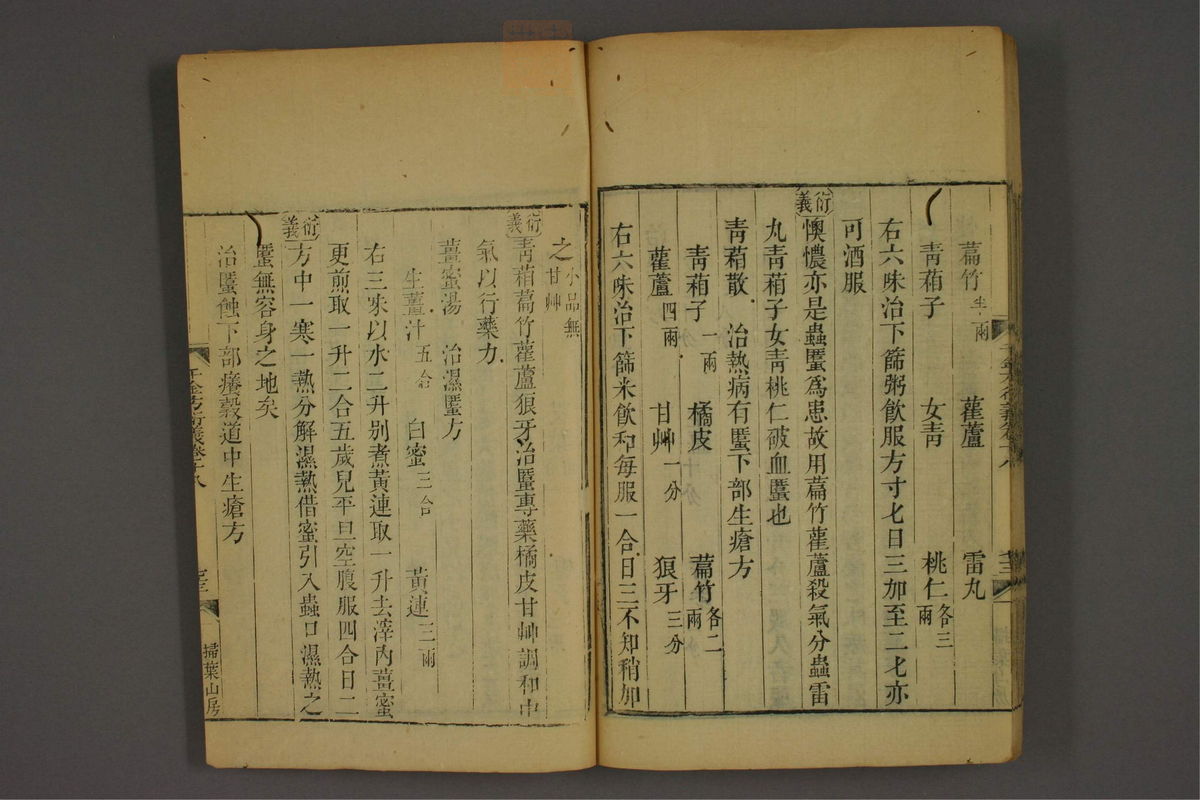 萹竹半兩　雚蘆　雷丸
青葙子　女青　桃仁各三兩
右六味治下篩粥飲服方寸匕日三加至二匕亦
可酒服
衍義懊憹亦是蟲䘌為患故用萹竹雚蘆殺氣分蟲雷
丸青葙子女青桃仁破血䘌也
青葙散　治熱病有䘌下部生瘡方
青葙子一兩　橘皮　萹竹各二兩
雚蘆四兩　甘艸一分　狼牙三分
右六味治下篩米飲和每服一合日三不知稍加
之小品無甘艸
衍義青葙萹竹雚蘆狼牙治䘌專藥橘皮甘艸調和中
氣以行藥力
薑蜜湯　治濕䘌方
生薑汁五合　白蜜三合　黃連三兩
右三味以水二升别煮黃連取一升去滓內薑蜜
更煎取一升二合五歲兒平旦空腹服四合日二
衍義方中一寒一熱分解濕熱借蜜引入蟲口濕熱之
䘌無容身之地矣
治䘌蝕下部癢穀道中生瘡方
千金方衍義卷十八
掃葉山房